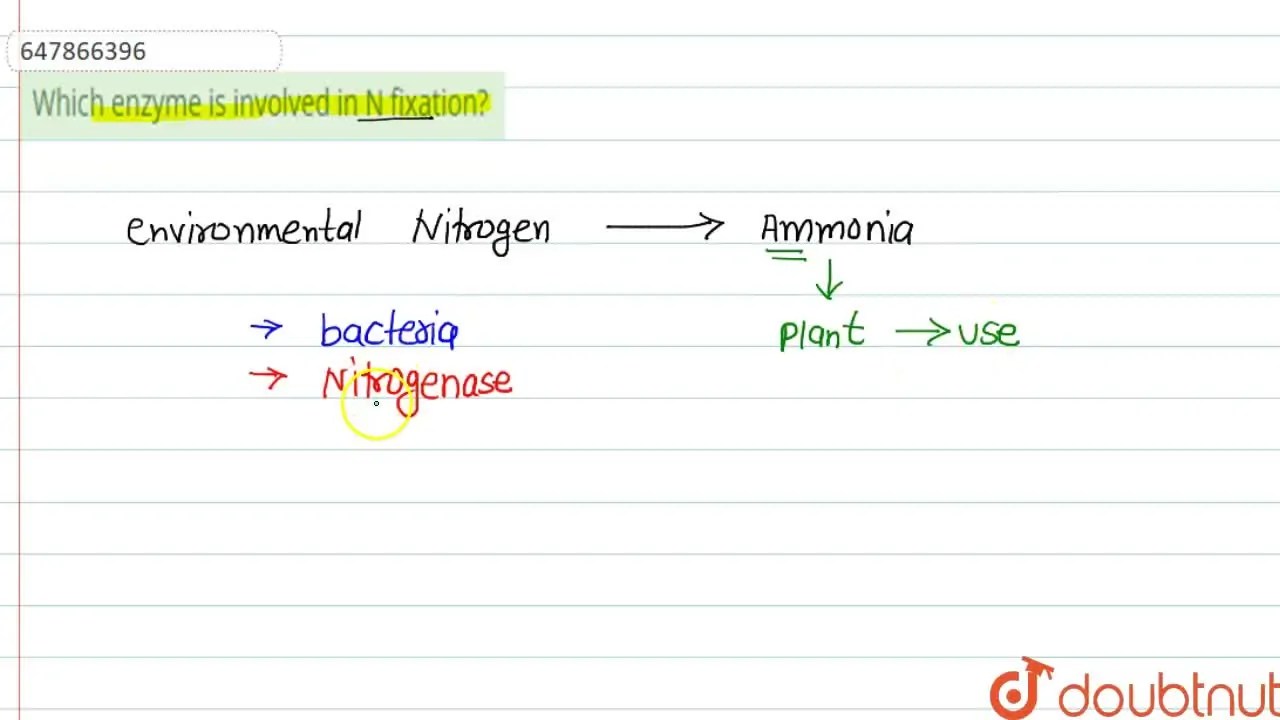 647866396
Which enzyme is involved in N fixation?
environmental Nitrogen → Ammonia
↓
→ bacteria
plant → use
→ Nitrogenase
doubtnut